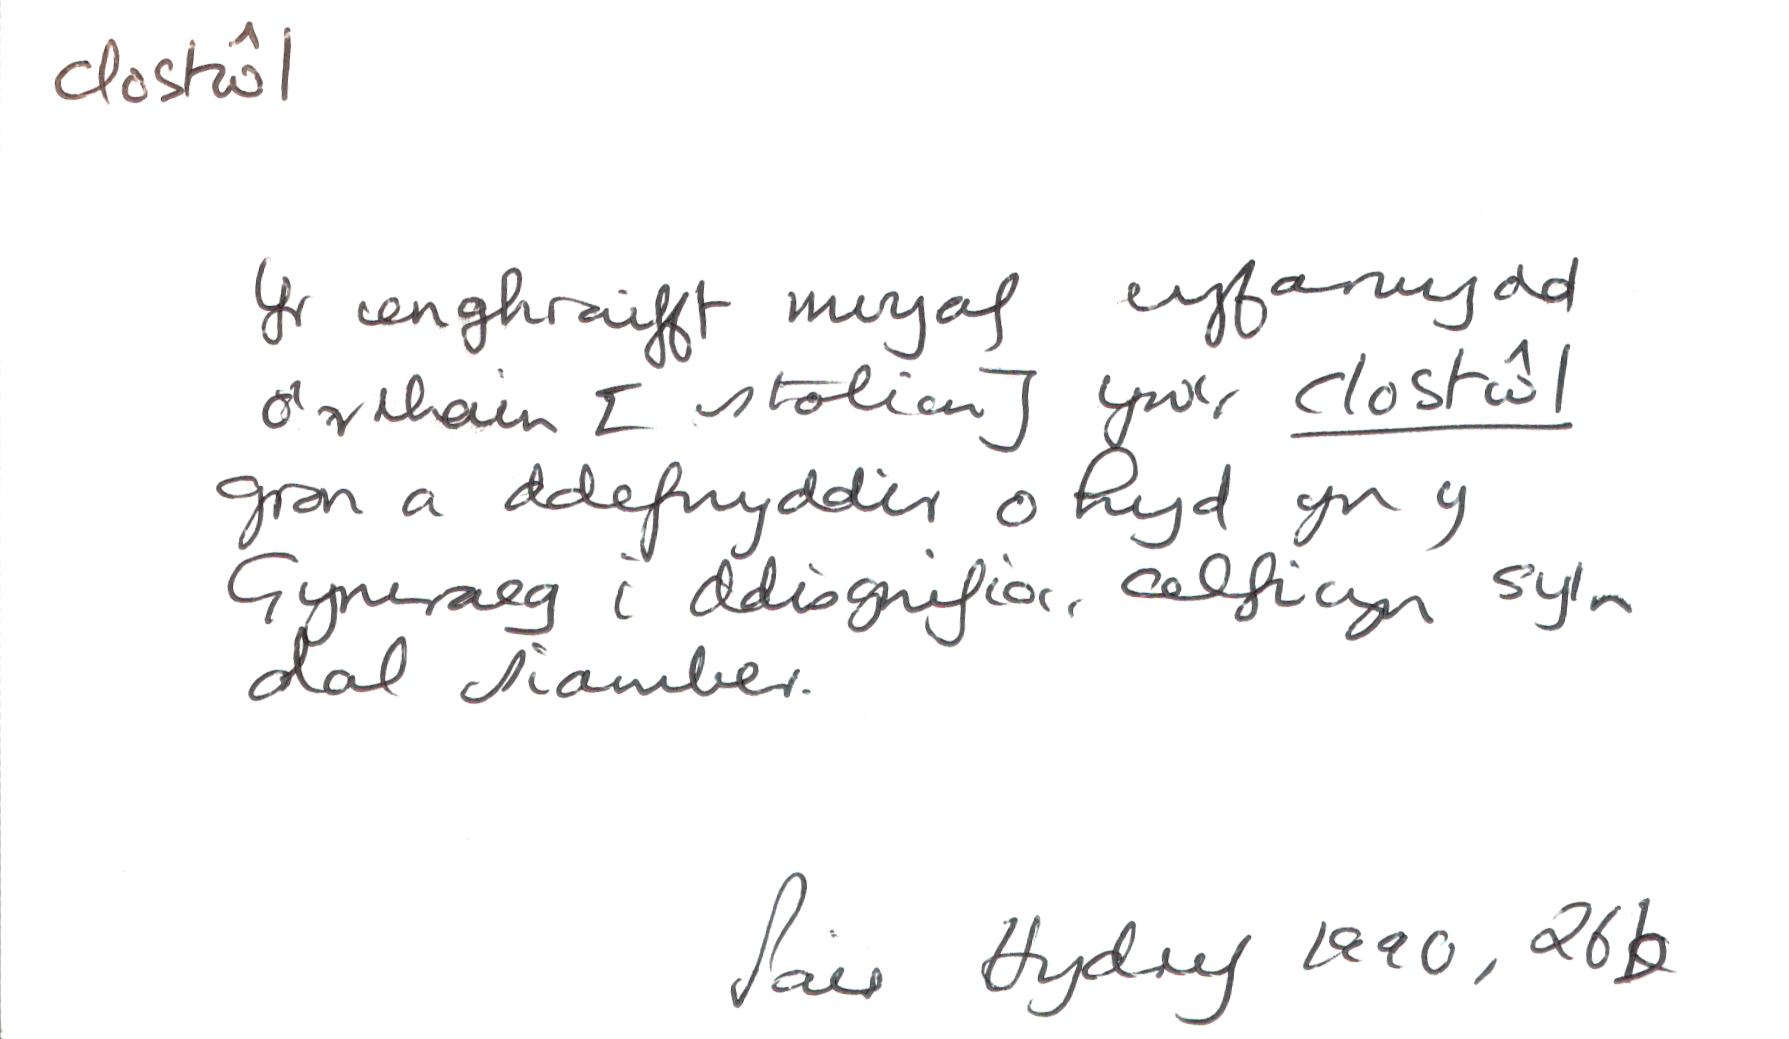 clostŵl
Yr enghraifft mwyaf cyfarwydd
o'r rhain [stolion] yw'r clostŵl
gron a ddefnyddir o hyd yn y
Gymraeg i ddisgrifio'r celficyn sy'n
dal siamber.
Hydref 1990, 26b